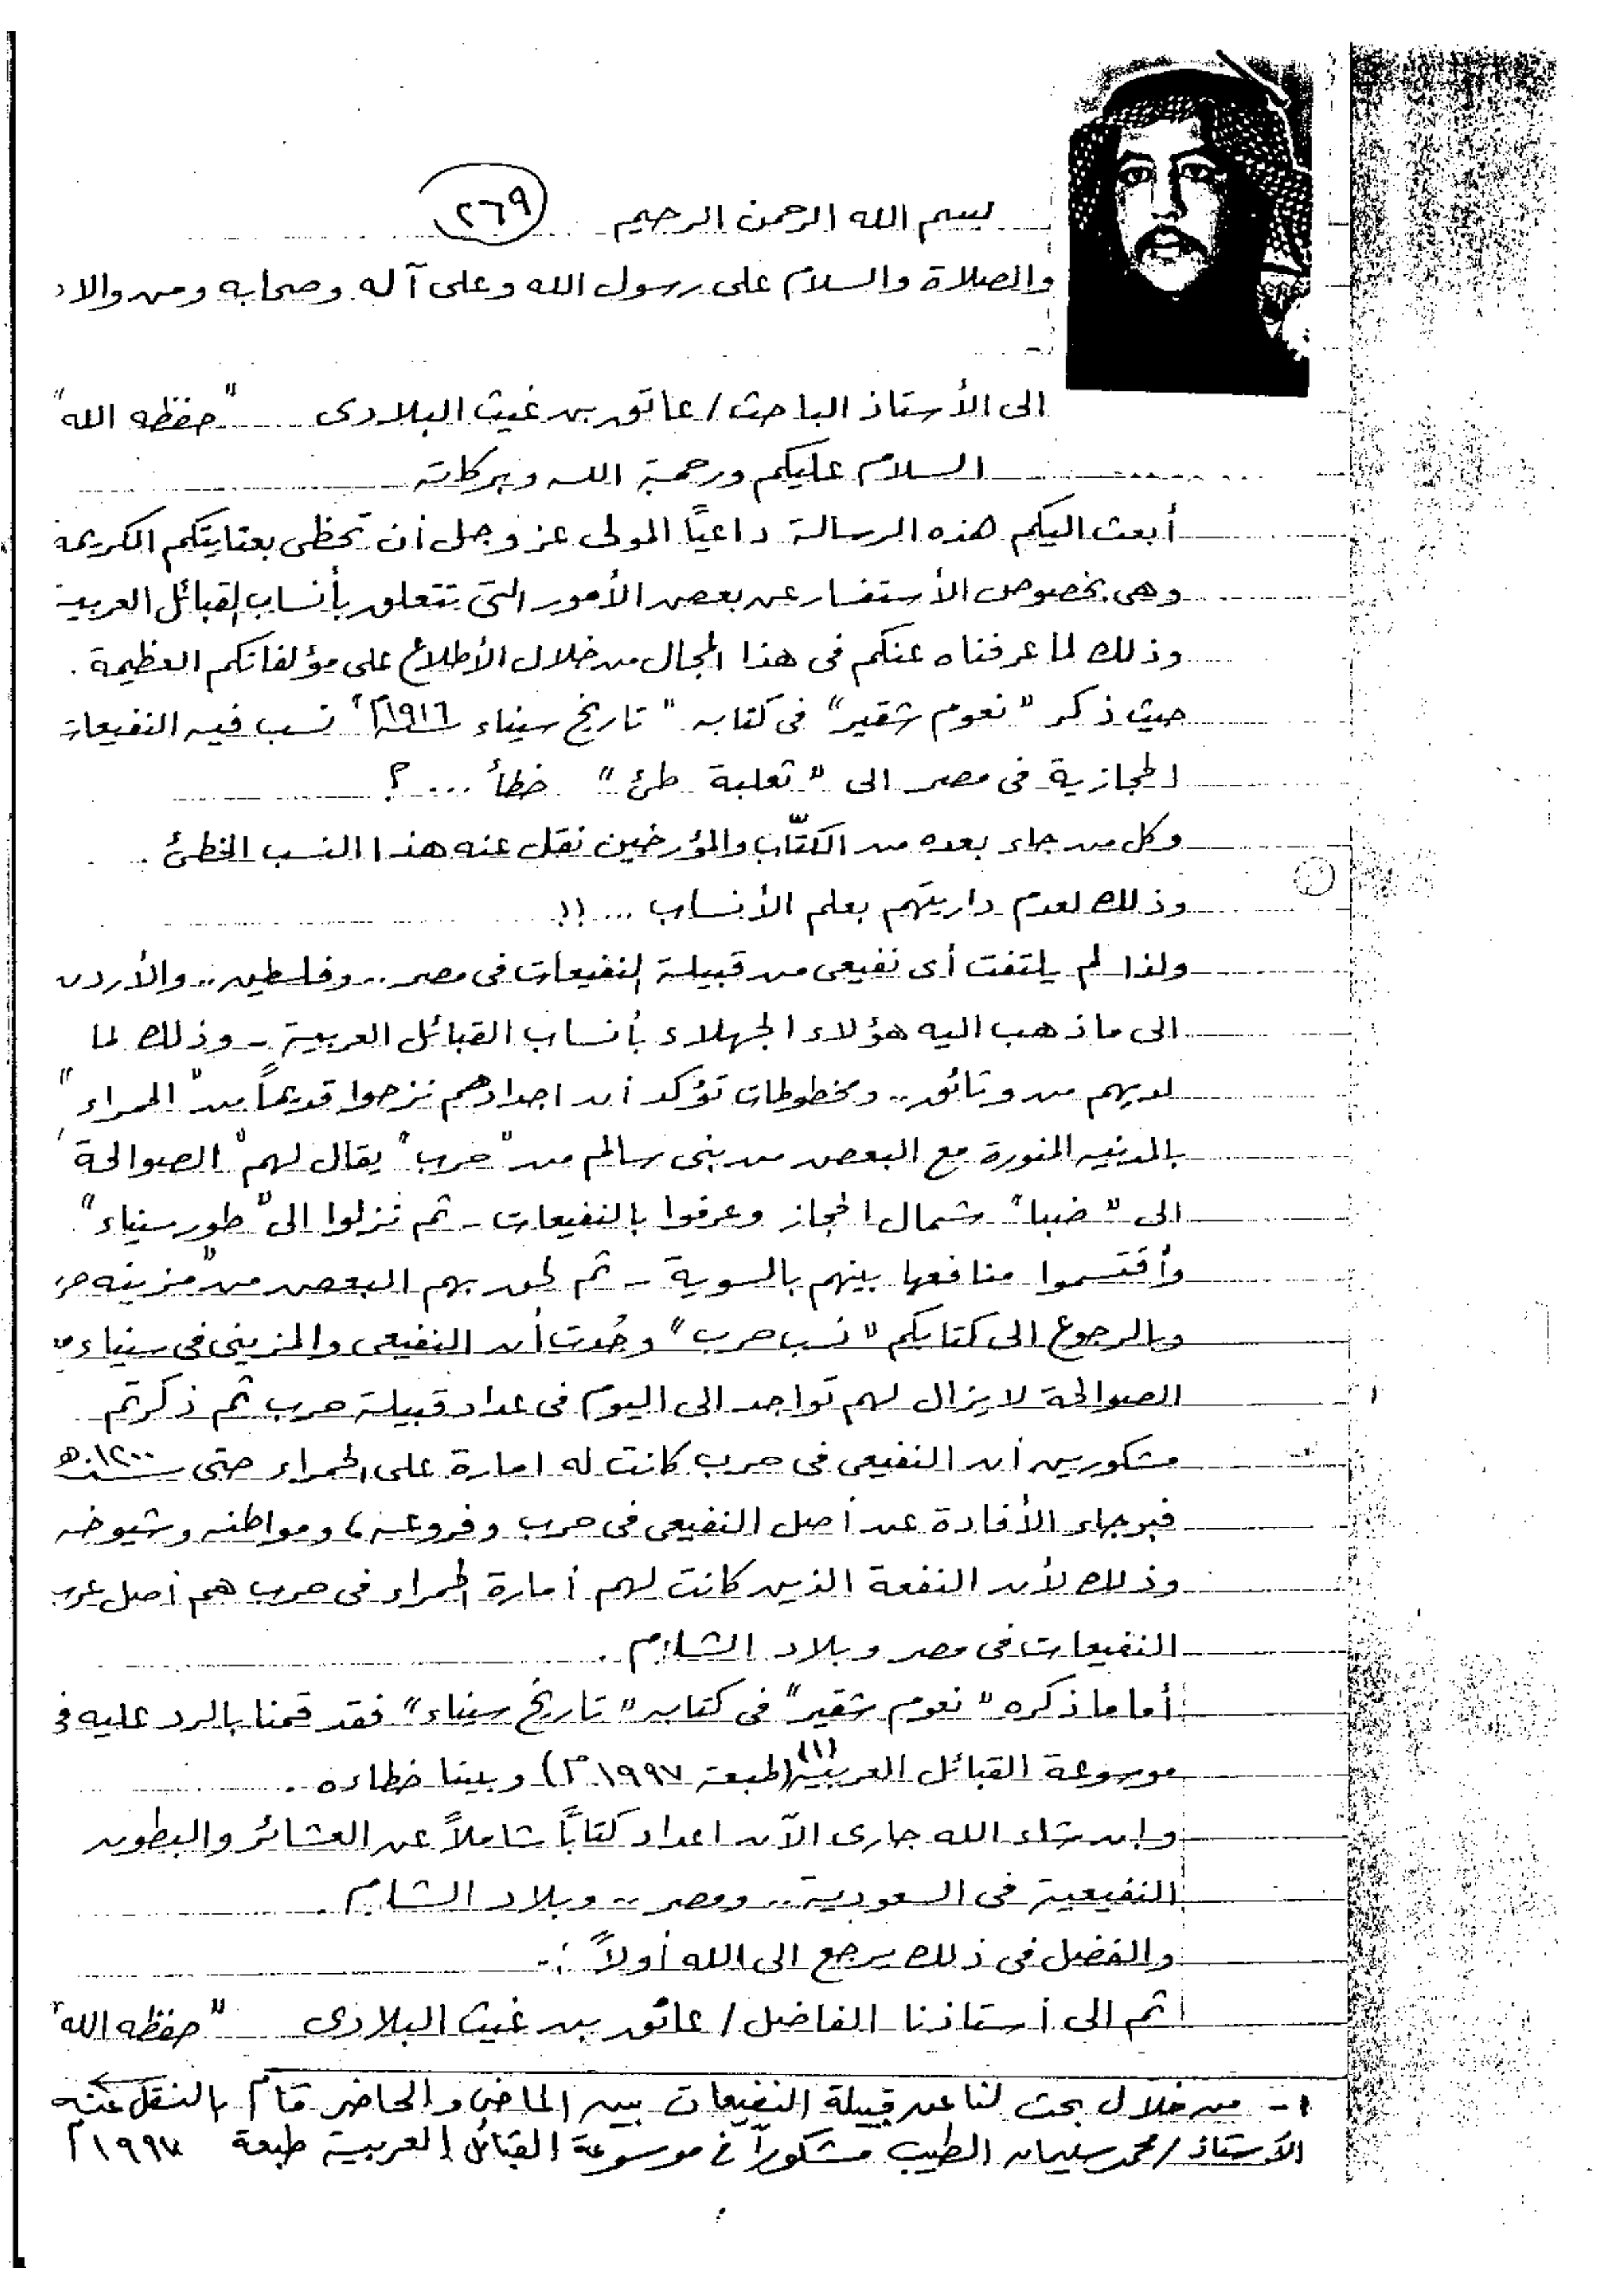 بسم الله الرحمن الرحيم
٢٦٩
والصلاة والسلام على رسول الله وعلى آله وصحابه ومن والاه
الى الأستاذ الباحث / عاتق بن غيث البلادى "حفظه الله"
السلام عليكم ورحمة الله وبركاته
أبعث اليكم هذه الرسالة داعيًا المولى عز وجل أن تحظى بعنايتكم الكريمة
وهى بخصوص الأستفسار عن بعض الأمور التى تتعلق بأنساب القبائل العربية
وذلك لما عرفناه عنكم فى هذا المجال من خلال الأطلاع على مؤلفاتكم العظيمة .
حيث ذكر "نعوم شقير" فى كتابه "تاريخ سيناء ١٩١٦م" نسب فيه النفيعات
الحجازية فى مصر الى "ثعلبة طئ" خطأ ... ؟
وكل من جاء بعده من الكتّاب والمؤرخين نقل عنه هذا النسب الخطئ .
وذلك لعدم داريتهم بعلم الأنساب ... !!
ولذا لم يلتفت أى نفيعى من قبيلة النفيعات فى مصر .. وفلسطين .. والأردن
الى ما ذهب اليه هؤلاء الجهلاء بأنساب القبائل العربية - وذلك لما
لديهم من وثائق .. ومخطوطات تؤكد أن اجدادهم نزحوا قديمًا من "الحمراء"
بالمدينه المنورة مع البعض من بنى سالم من "حرب" يقال لهم "الصوالحة"
الى "ضبا" شمال الحجاز وعرفوا بالنفيعات - ثم نزلوا الى "طور سيناء"
وأقتسموا منافعها بينهم بالسوية - ثم لحق بهم البعض من "مزينه
وبالرجوع الى كتابكم "نسب حرب" وجُدت أن النفيعى والمزينى فى سيناء
الصوالحة لا يزال لهم تواجد الى اليوم فى عداد قبيلة حرب ثم ذكرتم
مشكورين أن النفيعى فى حرب كانت له امارة على الحمراء حتى سنة ١٢٠٠هـ
فبرجاء الأفادة عن أصل النفيعى فى حرب وفروعه ، ومواطنه وشيوخه
وذلك لأن النفعة الذين كانت لهم أمارة الحمراء فى حرب هم أصل عرب
النفيعات فى مصر وبلاد الشام .
أما ما ذكره "نعوم شقير" فى كتابه "تاريخ سيناء" فقد قمنا بالرد عليه فى
موسوعة القبائل العربية (١) (طبعة ١٩٩٧م) وبينا خطاءه .
وإن شاء الله جارى الآن اعداد كتابًا شاملاً عن العشائر والبطون
النفيعية فى السعودية .. ومصر .. وبلاد الشام .
والفضل فى ذلك يرجع الى الله أولاً :-
ثم الى أستاذنا الفاضل / عاتق بن غيث البلادى "حفظه الله"
١ - من خلال بحث لنا عن قبيلة النفيعات بين الماضى والحاضر قام بالنقل عنه
الأستاذ / محمد سليمان الطيب مشكوراً فى موسوعة القبائل العربية طبعة ١٩٩٧م